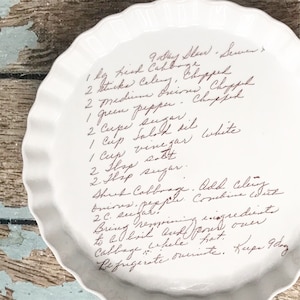 9 day Slaw
1 lg Head Cabbage
2 Stalks Celery, Chopped
2 medium Onions Chopped
1 green pepper. Chopped
2 Cups sugar
1 Cup Salad oil
1 Cup vinegar white
2 Tbsp salt
2 Tbsp sugar
Shred Cabbage. Add Celery
onions, pepper Combine with
2 C. sugar.
Bring remaining ingredients
to a boil and pour over
Cabbage while hot.
Refrigerate overnite. Keeps 9 day